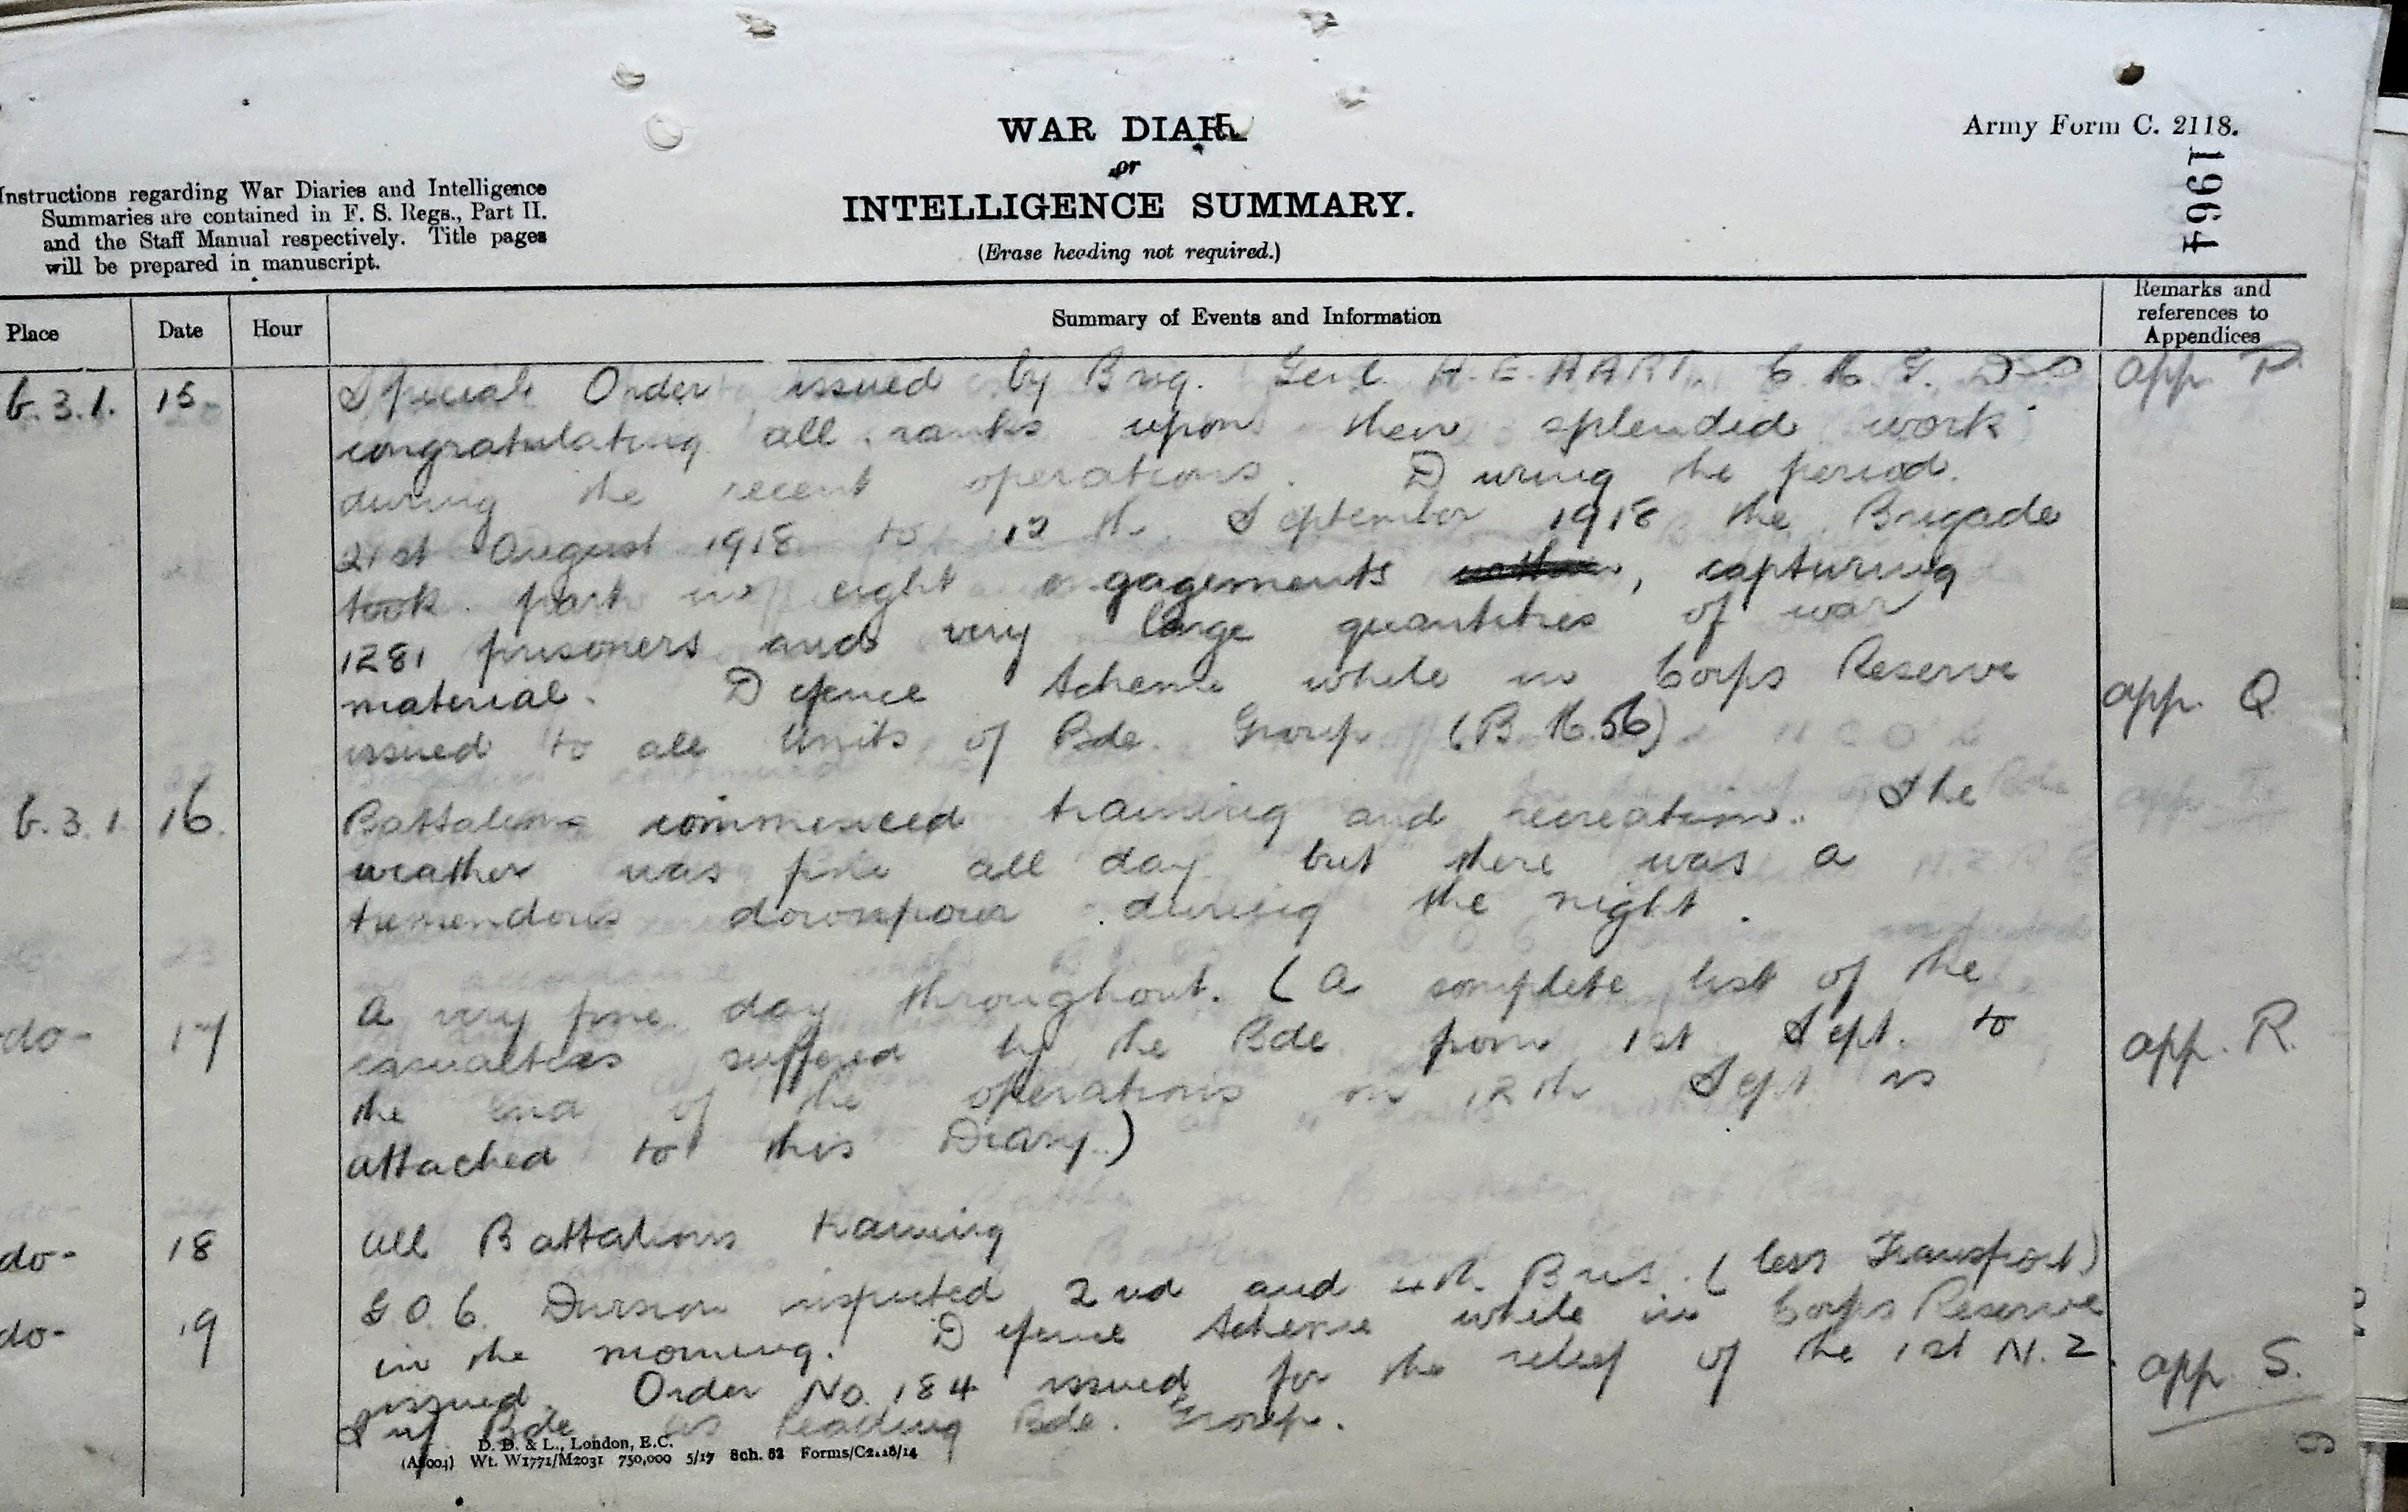 WAR DIAR
Army Form C. 2118.
or
INTELLIGENCE SUMMARY.
(Erase heading not required.)
1964
Instructions regarding War Diaries and Intelligence
Summaries are contained in F. S. Regs., Part II.
and the Staff Manual respectively. Title pages
will be prepared in manuscript.
Place Date Hour Summary of Events and Information Remarks and references to Appendices
C.3.1. 15 Special Order issued by Brig. Genl. H.E. HART, C.M.G. DSO app. P
congratulating all ranks upon their splendid work
during the recent operations. During the period
21st August 1918 to 12th September 1918 the Brigade
took part in eight engagements, capturing
1281 prisoners and very large quantities of war
material. Defence Scheme while in Corps Reserve app. Q
issued to all Units of Bde. Group (B.M.56)
C.3.1 16. Battalions commenced training and recreation. The
weather was fine all day but there was a
tremendous downpour during the night.
-do- 17 A very fine day throughout. (A complete list of the
casualties suffered by the Bde from 1st Sept. to app. R.
the end of the operations on 12th Sept is
attached to this Diary.)
do- 18 All Battalions training
do- 19 G.O.C. Division inspected 2nd and 4th Bns. (less Transport)
in the morning. Defence Scheme while in Corps Reserve
issued. Order No. 184 issued for the relief of the 1st N.Z. app. S.
Inf Bde as leading Bde. Group.
D. D. & L., London, E.C.
(A8004) Wt. W1771/M2031 750,000 5/17 Sch. 52 Forms/C2118/14